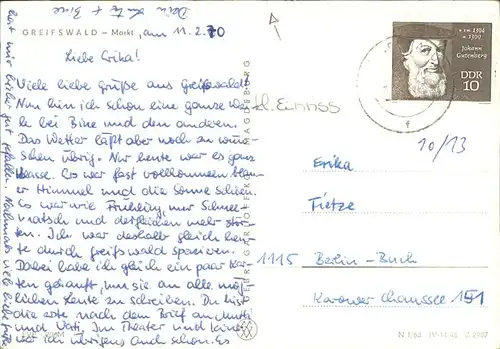 Dein Lutz + Bine
GREIFSWALD – Markt, am 11.2.70
Liebe Erika!
Viele liebe Grüße aus Greifswald!
Nun bin ich schon eine ganze Wei-
le bei Bine und den anderen.
Das Wetter läßt aber noch zu wün-
schen übrig. Nur heute war es ganz
klasse. Es war fast vollkommen blau-
er Himmel und die Sonne schien.
Es war wie Frühling, nur Schnee-
matsch und dergleichen mehr stör-
ten. Ich war deshalb gleich heu-
te durch Greifswald spazieren.
Dabei habe ich gleich ein paar Kar-
ten gekauft, um sie an alle mög-
lichen Leute zu schreiben. Du bist
die erste nach dem Brief an Mutti
und Vati. Im Theater und Kino
war ich übrigens auch schon. Es
hat mir bisher gut gefallen. Nochmals viele liebe Grüße
kl. Einriss
MAGDEBURG
Johann
Gutenberg
DDR
10
10/13
Erika
Tietze
1115 Berlin-Buch
Karower Chaussee 151